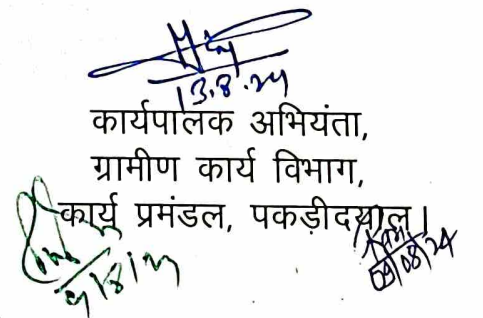 13.8.24
कार्यपालक अभियंता,
ग्रामीण कार्य विभाग,
कार्य प्रमंडल, पकड़ीदयाल।
09/08/24